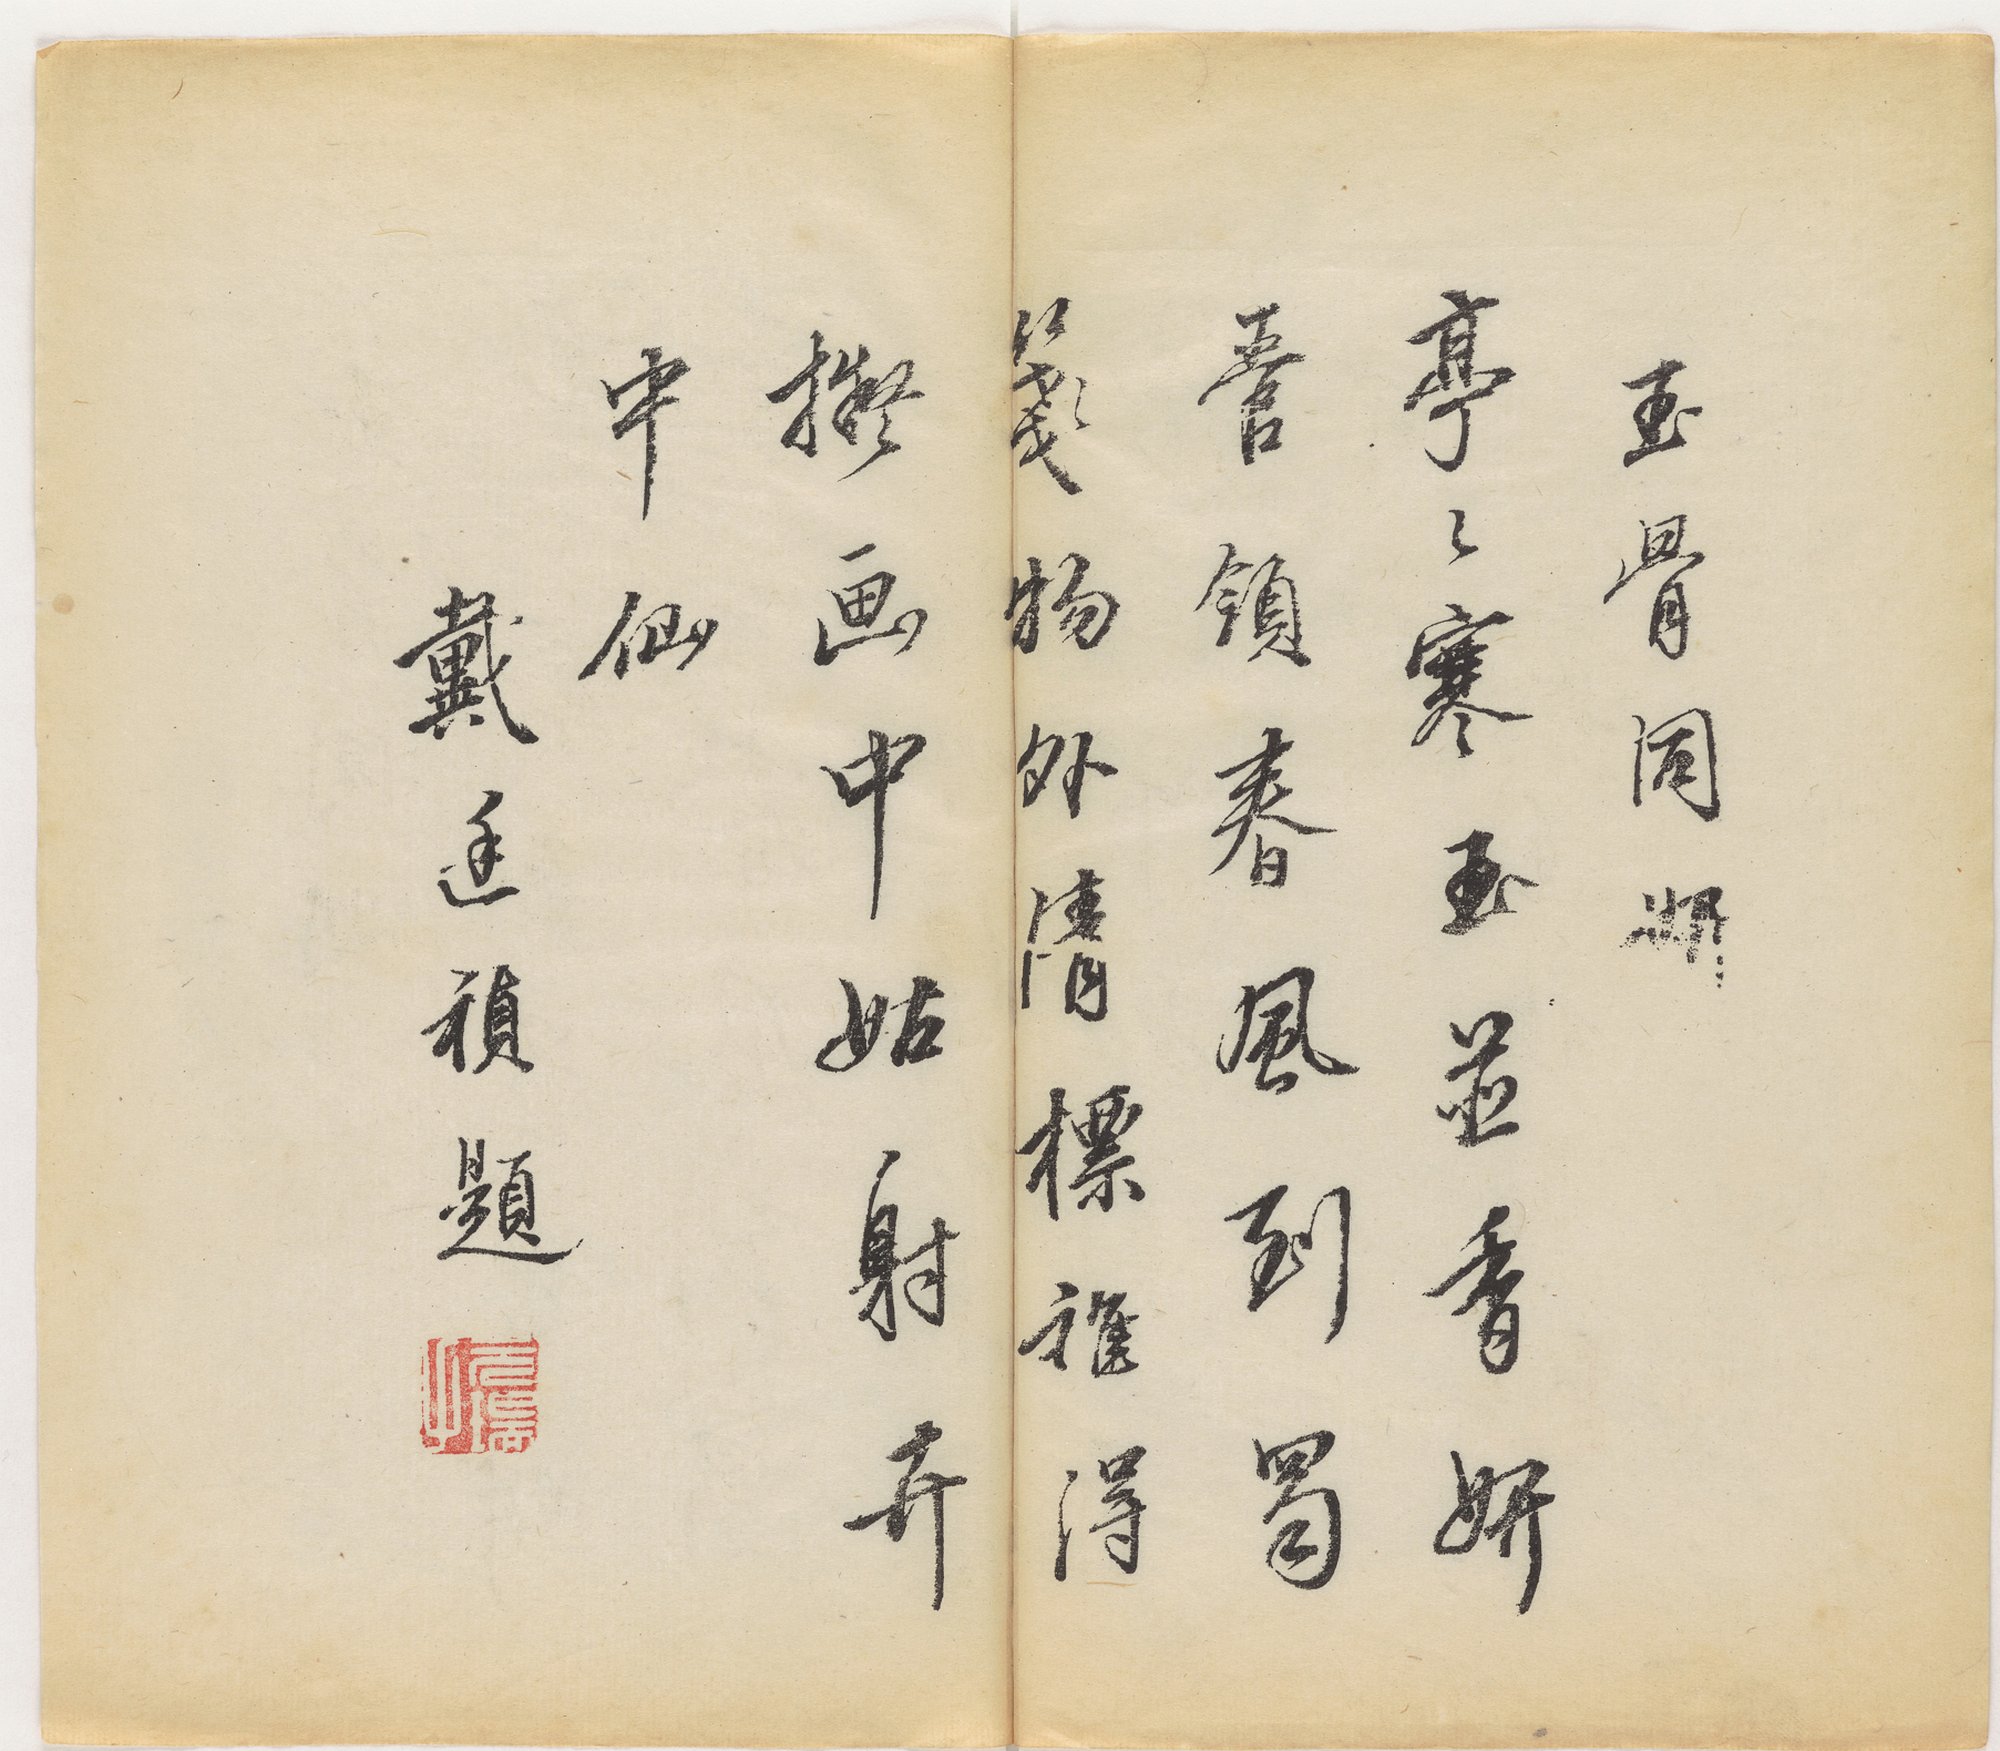 玉骨同妍
亭〻寒玉並香妍
善領春風到蜀
箋物外清標雅得
擬画中姑射卉
中仙
戴廷禎題